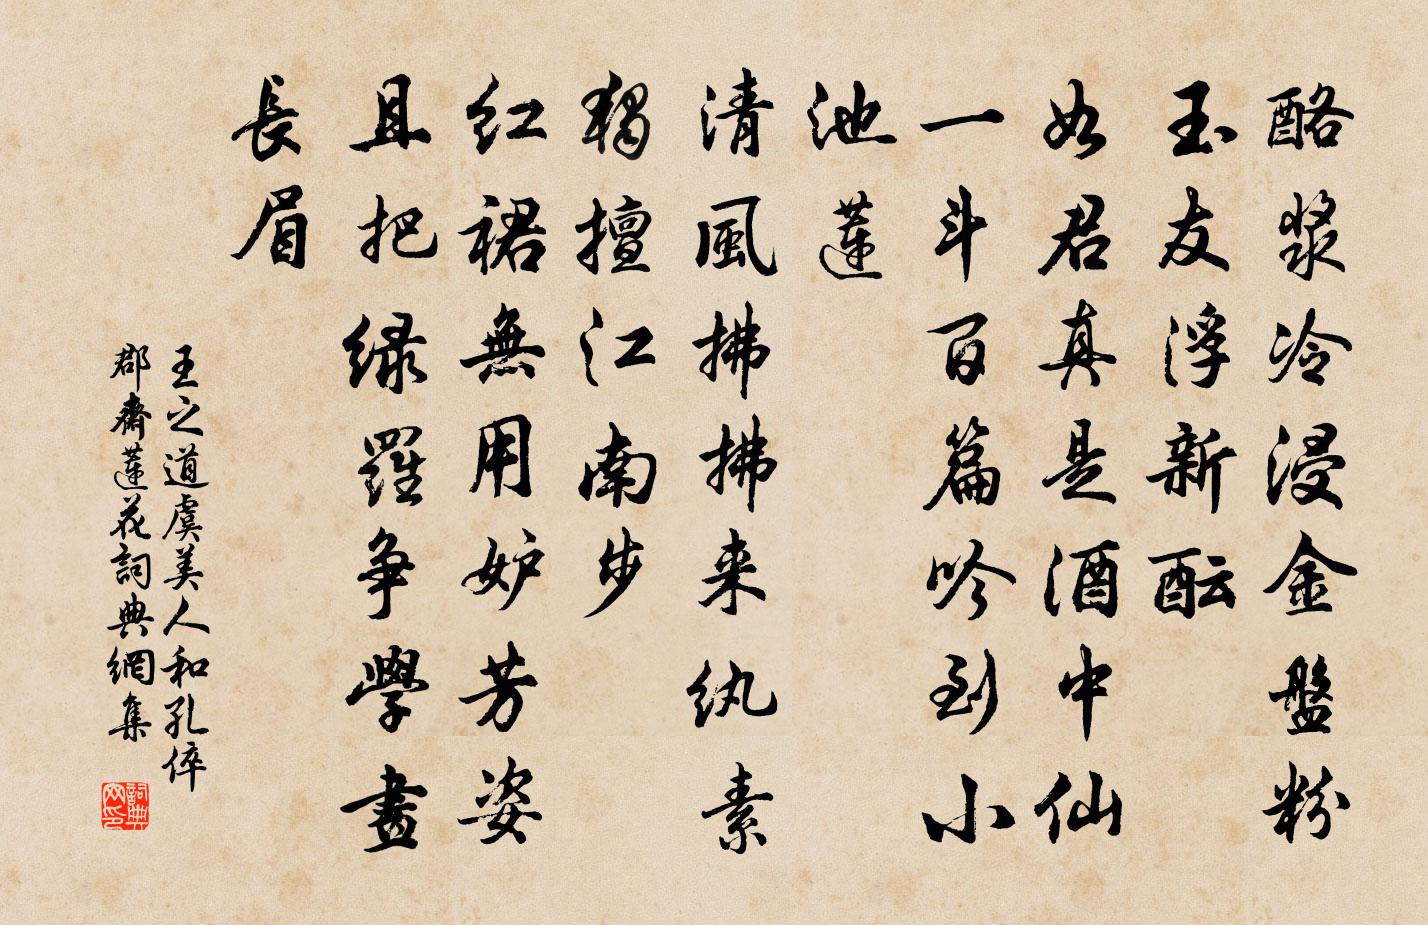 酪漿冷浸金盤粉
玉友浮新酝
如君真是酒中仙
一斗百篇吟到小
池蓮
清風拂拂来纨素
獨擅江南步
红裙無用妒芳姿
且把緑羅争學畫
長眉
王之道虞美人和孔倅
郡齋蓮花詞典網集
詞典网印